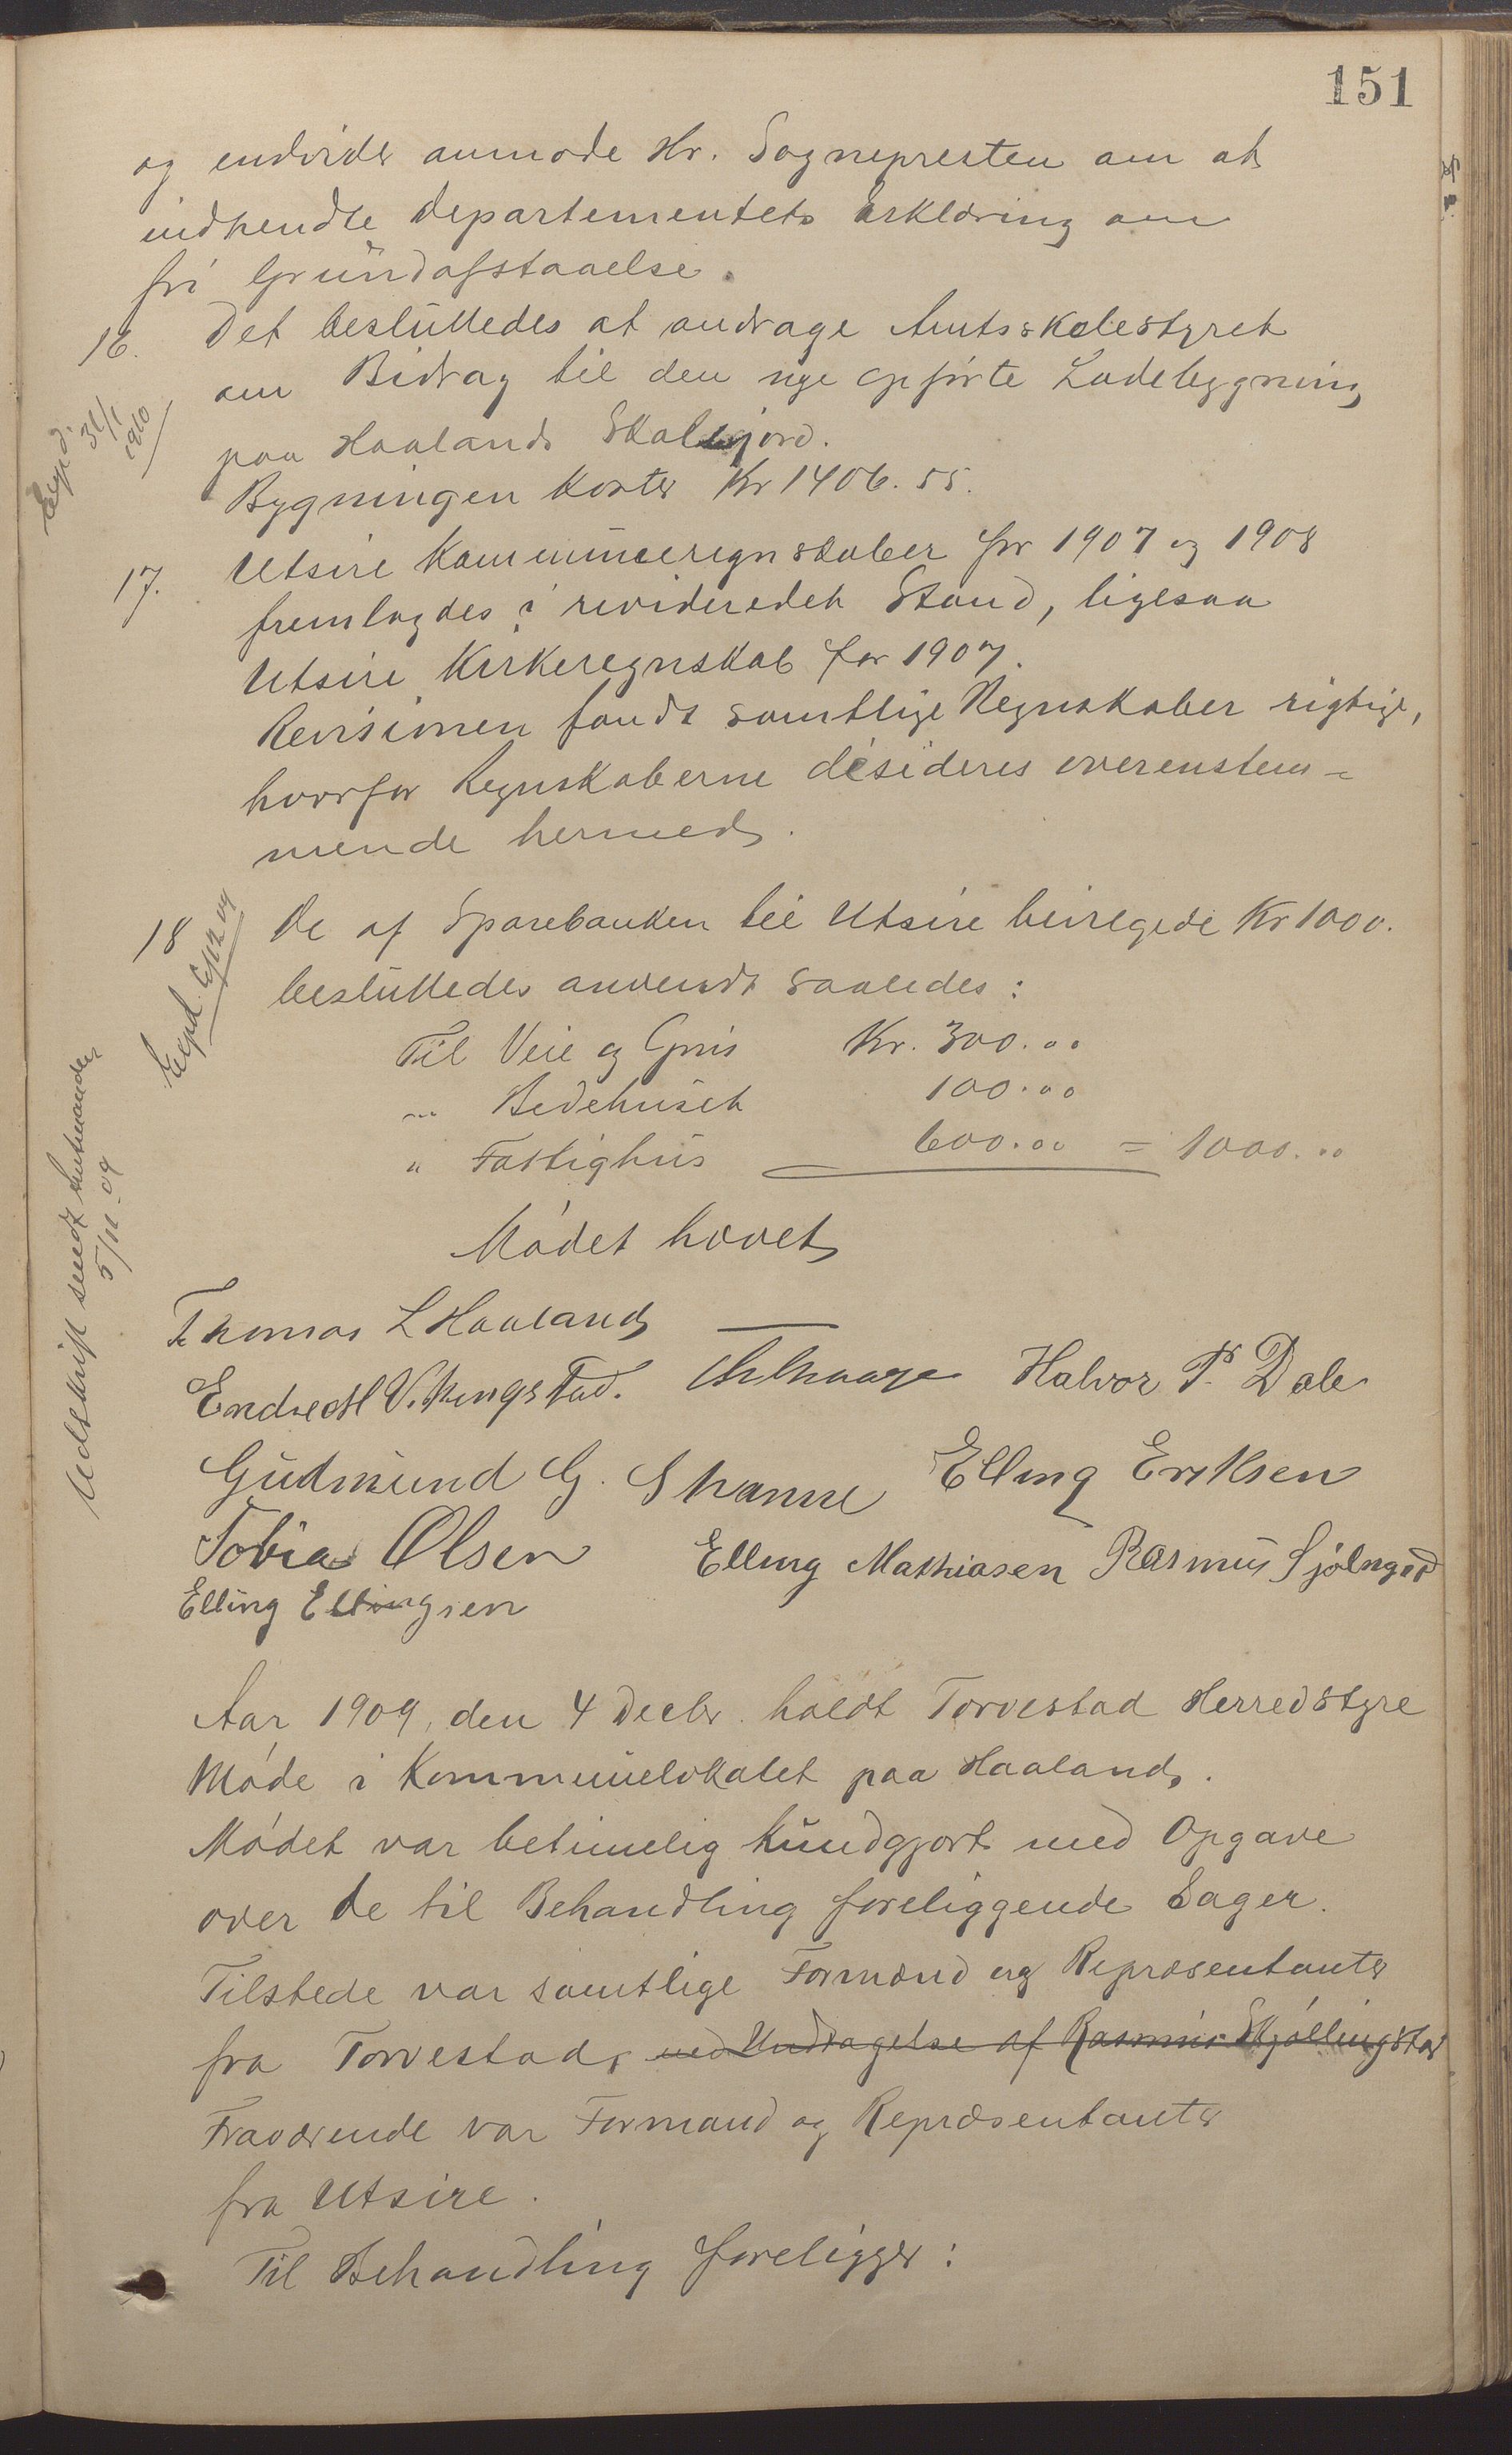 151
og endvider anmode Hr. Sognepresten om at
indhendte Departementets Erklæring om
fri Grundafstaaelse.
16. Det besluttedes at andrage Amtsskolestyret
om Bidrag til den nye opførte Ladebygning
paa Haalands Skolejord.
Bygningen koster Kr 1406.55.
Expd. 31/1 1910
17. Utsire Kommuneregnskaber for 1907 og 1908
fremlagdes i revideredet Stand, ligesaa
Utsire Kirkeregnskab for 1907.
Revisionen fandt samtlige Regnskaber rigtige,
hvorfor Regnskaberne desideres overenstem-
mende hermed.
18 De af Sparebanken til Utsire bevilgede Kr 1000.
besluttedes anvendt saaledes:
Expd.
Til Veie og Kr. 300.00
" Bedehuset 100.00
" Fattighus 600.00 = 1000.00
Mødet hævet
Udskrift sendt Amtmanden
5/11-09
Thomas L Haaland
Endre M Vikingstad. Halvor P. Dale
Gudmund G. Skanne Elling Eriksen
Tobias Olsen Elling Mathiasen Rasmus
Elling Ellingsen
Aar 1909, den 4 Decbr. holdt Torvestad Herredstyre
Møde i Kommunelokalet paa Haaland.
Mødet var betimelig kundgjort med Opgave
over de til Behandling foreliggende Sager.
Tilstede var samtlige Formænd og Repræsentanter
fra Torvestad, med Undtagelse af Rasmus Skjøllingstad
Fraværende var Formænd og Repræsentanter
fra Utsire.
Til Behandling foreligger: